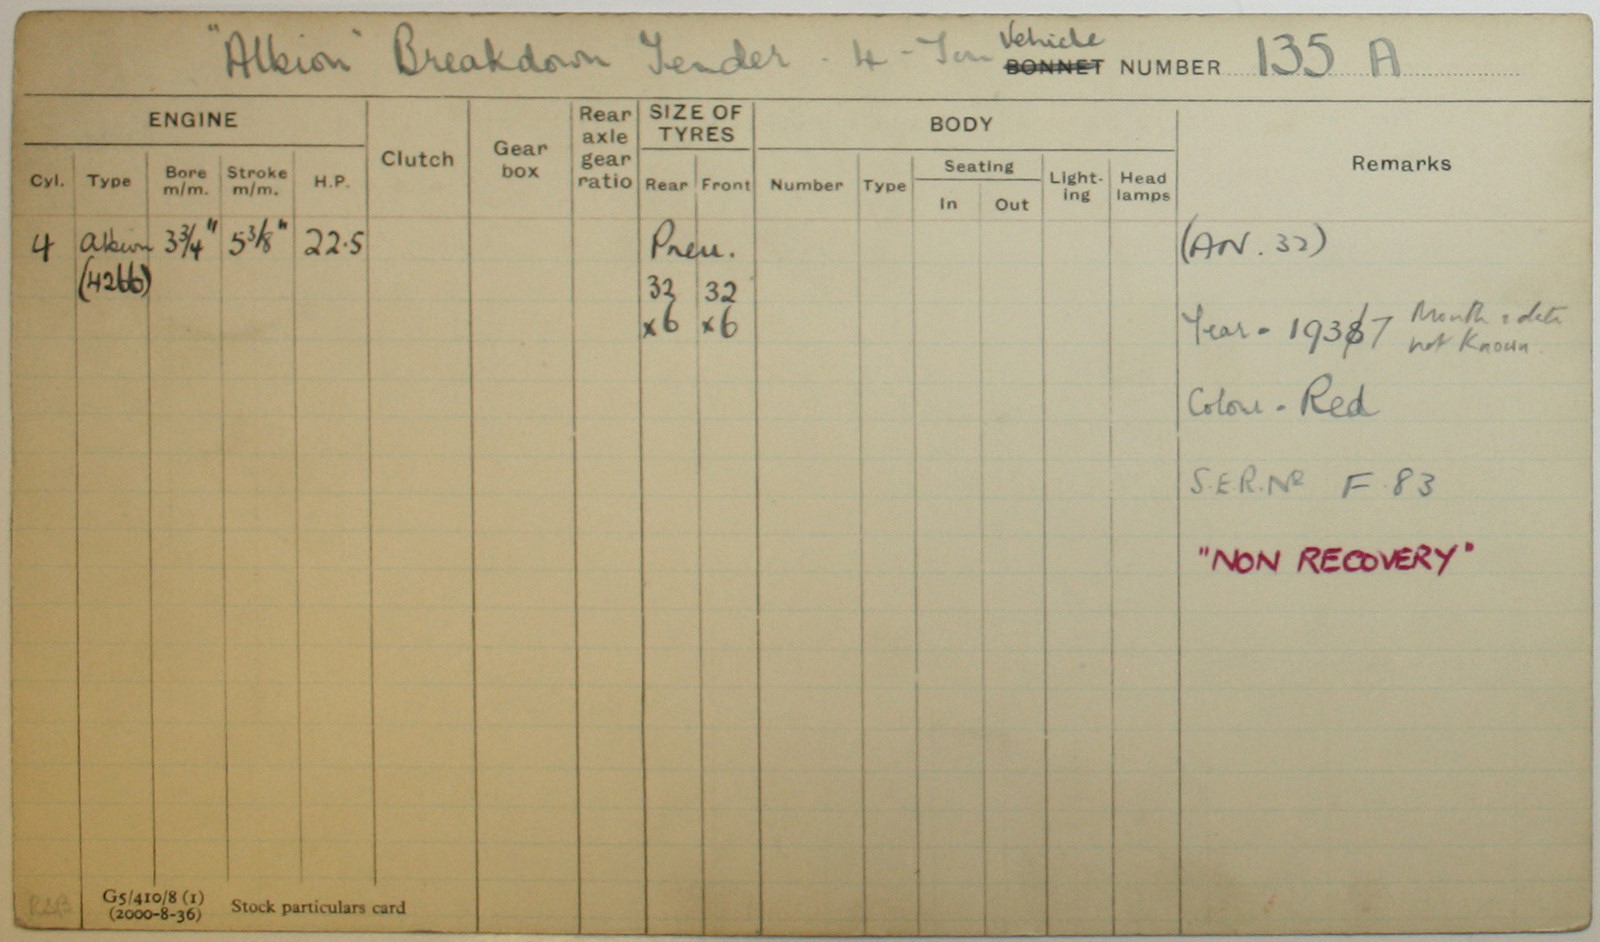 "Albion" Breakdown Tender - 4-Ton Vehicle BONNET NUMBER 135 A
ENGINE
Clutch
Gear box
Rear axle gear ratio
SIZE OF TYRES
BODY
Remarks
Cyl. Type Bore m/m. Stroke m/m. H.P.
Rear Front
Number Type
Seating
In Out
Light-ing
Head lamps
4 Albion 3 3/4" 5 3/8" 22.5 Pneu. (AN. 32)
(4266)
32 32
x6 x6
Year - 19387 Month & date
not Known.
Colour - Red
S.E.R. No F 83
"NON RECOVERY"
G5/410/8 (1)
(2000-8-36)
Stock particulars card